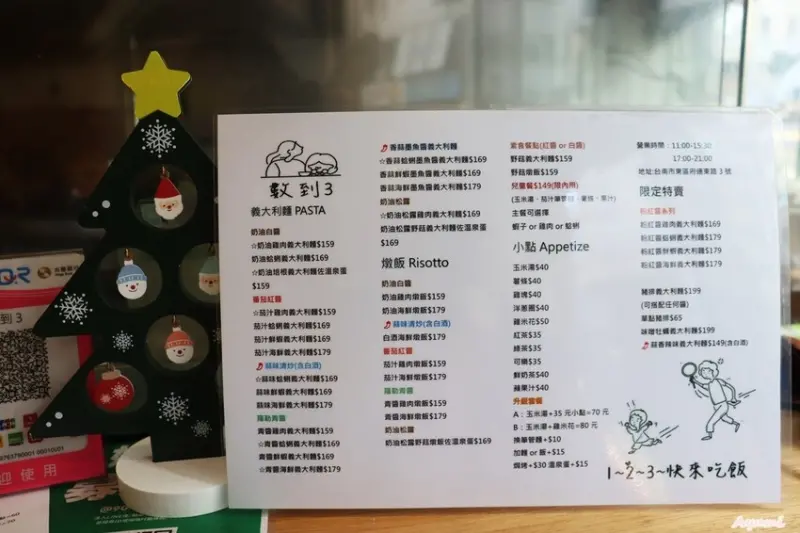 數到3
義大利麵 PASTA
奶油白醬
☆奶油雞肉義大利麵$159
奶油蛤蜊義大利麵$169
☆奶油培根義大利麵佐溫泉蛋
$159
蕃茄紅醬
☆茄汁雞肉義大利麵$159
茄汁蛤蜊義大利麵$169
茄汁鮮蝦義大利麵$169
茄汁海鮮義大利麵$179
蒜味清炒(含白酒)
☆蒜味蛤蜊義大利麵$169
蒜味鮮蝦義大利麵$169
蒜味海鮮義大利麵$179
羅勒青醬
青醬雞肉義大利麵$159
☆青醬蛤蜊義大利麵$169
青醬鮮蝦義大利麵$169
☆青醬海鮮義大利麵$179
香蒜墨魚醬義大利麵
☆香蒜蛤蜊墨魚醬義大利麵$169
香蒜鮮蝦墨魚醬義大利麵$169
香蒜海鮮墨魚醬義大利麵$179
奶油松露
☆奶油松露雞肉義大利麵$169
奶油松露野菇義大利麵佐溫泉蛋
$169
燉飯 Risotto
奶油白醬
奶油雞肉燉飯$159
奶油海鮮燉飯$179
蒜味清炒(含白酒)
白酒海鮮燉飯$179
蕃茄紅醬
茄汁雞肉燉飯$159
茄汁海鮮燉飯$179
羅勒青醬
青醬雞肉燉飯$159
青醬海鮮燉飯$179
奶油松露
奶油松露野菇燉飯佐溫泉蛋$169
素食餐點(紅醬 or 白醬)
野菇義大利麵$159
野菇燉飯$159
兒童餐$149(限內用)
主餐可選擇
蝦子 or 雞肉 or 蛤蜊
小點 Appetize
玉米湯$40
薯條$40
雞塊$40
洋蔥圈$40
雞米花$50
紅茶$35
綠茶$35
可樂$35
鮮奶茶$40
蘋果汁$40
升級套餐
A：玉米湯+35 元小點=70 元
B：玉米湯+雞米花=80 元
換筆管麵+$10
加麵 or 飯+$15
焗烤+$30 溫泉蛋+$15
營業時間：11:00-15:30
17:00-21:00
地址:台南市東區府連東路 3 號
限定特賣
粉紅醬系列
粉紅醬雞肉義大利麵$169
粉紅醬蛤蜊義大利麵$179
粉紅醬鮮蝦義大利麵$179
粉紅醬海鮮義大利麵$179
豬排義大利麵$199
(可搭配任何醬)
單點豬排$65
味噌牡蠣義大利麵$199
蒜香辣味義大利麵$149(含白酒)
1~2~3~快來吃飯
到 3
迎使用